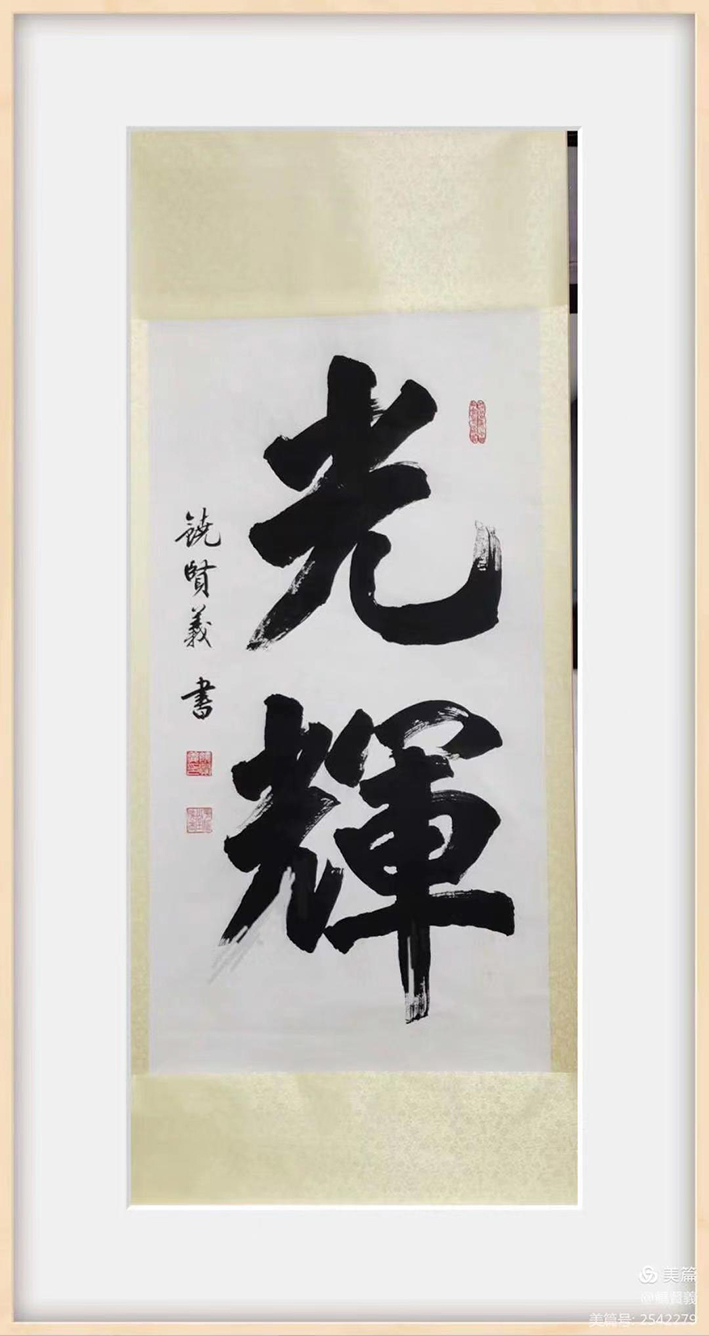 光輝
饒賢義 書
美篇
@饒賢義
美篇号: 2542279